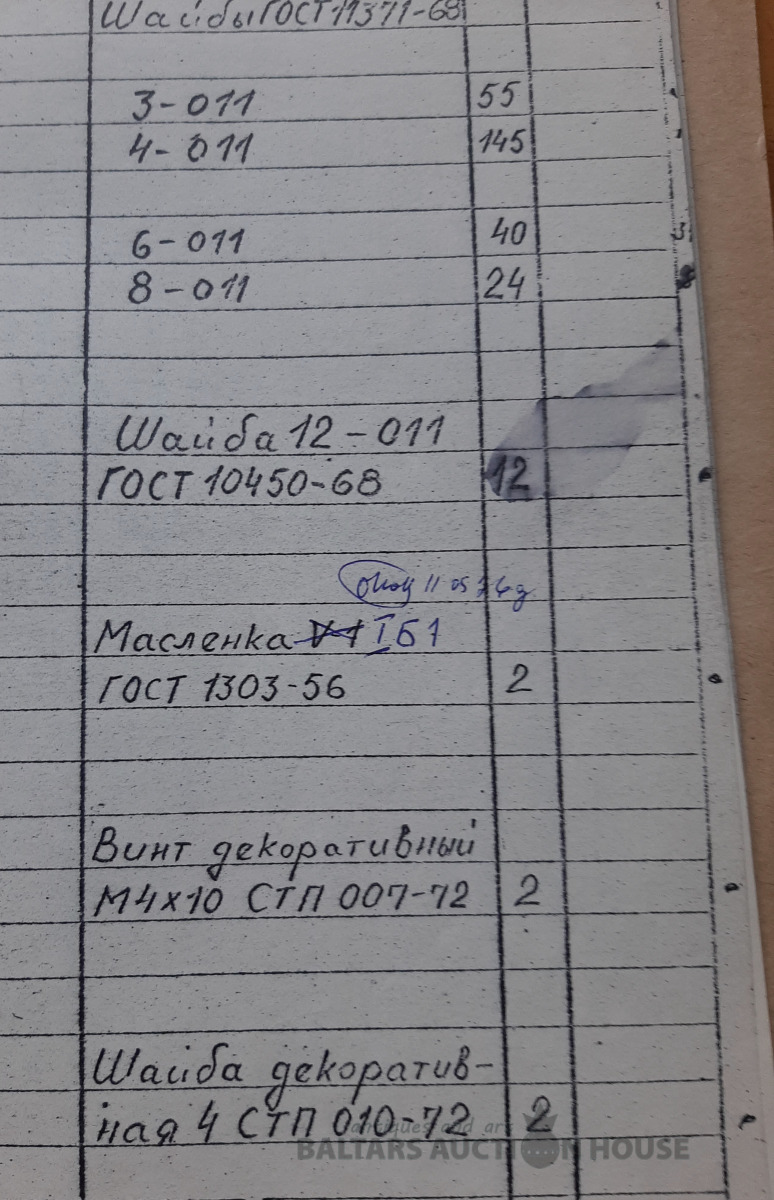 Шайбы ГОСТ 11371-68
3-011 55
4-011 145
6-011 40
8-011 24
Шайба 12-011
ГОСТ 10450-68 12
Масленка I Б1
ГОСТ 1303-56 2
Винт декоративный
М4х10 СТП 007-72 2
Шайба декоратив-
ная 4 СТП 010-72 2
antiques and art
BALTARS AUCTION HOUSE